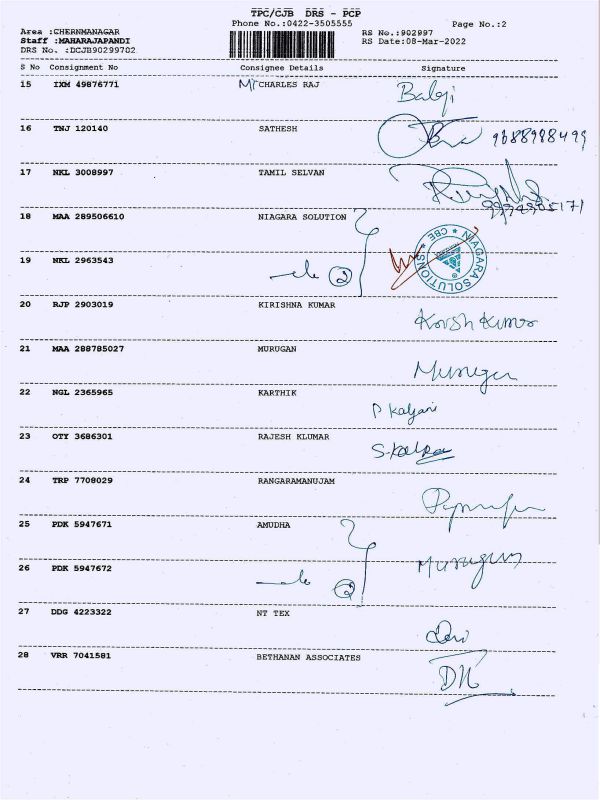 TPC/CJB DRS - PCP
Phone No.:0422-3505555 Page No.:2
Area :CHERNMANAGAR RS No.:902997
Staff :MAHARAJAPANDI RS Date:08-Mar-2022
DRS No. :DCJB90299702
S No Consignment No Consignee Details Signature
15 IXM 49876771 Mr CHARLES RAJ Balaji
16 TNJ 120140 SATHESH 9688988499
17 NKL 3008997 TAMIL SELVAN
18 MAA 289506610 NIAGARA SOLUTION
NIAGARA SOLUTIONS * CBE *
19 NKL 2963543 2
20 RJP 2903019 KIRISHNA KUMAR
Kumar
21 MAA 288785027 MURUGAN
Murugan
22 NGL 2365965 KARTHIK
P Kalyani
23 OTY 3686301 RAJESH KLUMAR
24 TRP 7708029 RANGARAMANUJAM
25 PDK 5947671 AMUDHA
Murugan
26 PDK 5947672 2
27 DDG 4223322 NT TEX
Devi
28 VRR 7041581 BETHANAN ASSOCIATES